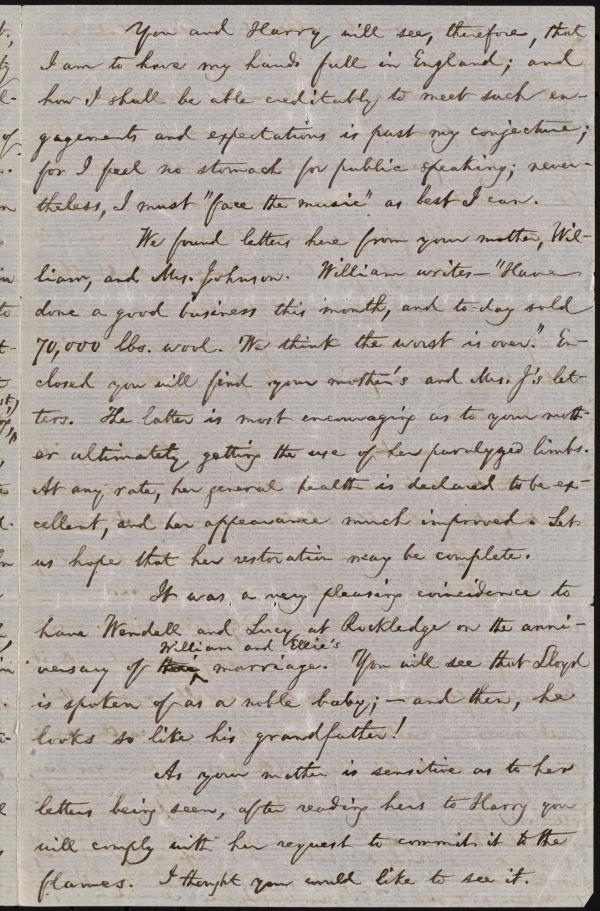 You and Harry will see, therefore, that
I am to have my hands full in England; and
how I shall be able creditably to meet such en-
gagements and expectations is past my conjecture;
for I feel no stomach for public speaking; never-
theless, I must "face the music" as best I can.
We found letters here from your mother, Wil-
liam, and Mrs. Johnson. William writes—"Have
done a good business this month, and to-day sold
70,000 lbs. wool. We think the worst is over." En-
closed you will find your mother's and Mrs. J's let-
ters. The latter is most encouraging as to your moth-
er ultimately getting the use of her paralyzed limbs.
At any rate, her general health is declared to be ex-
cellent, and her appearance much improved. Let
us hope that her restoration may be complete.
It was a very pleasing coincidence to
have Wendell and Lucy at Rockledge on the anni-
William and Ellie's
versary of their marriage. You will see that Lloyd
is spoken of as a noble baby;—and then, he
looks so like his grandfather!
As your mother is sensitive as to her
letters being seen, after reading hers to Harry you
will comply with her request to commit it to the
flames. I thought you would like to see it.